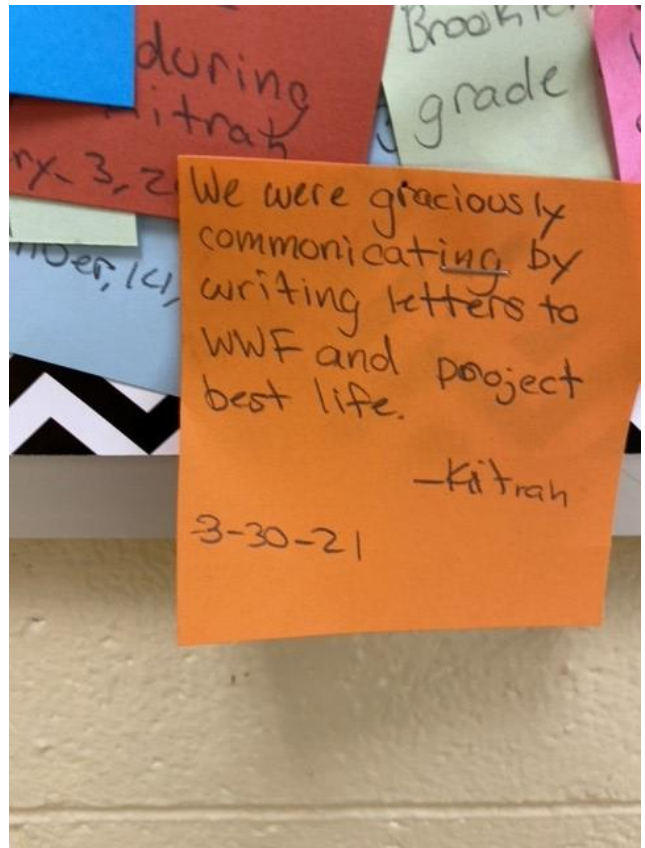 during
itrah
3, 2
Brookle
grade
We were graciously
commonicating by
writing letters to
WWF and project
best life.
-Kitrah
3-30-21